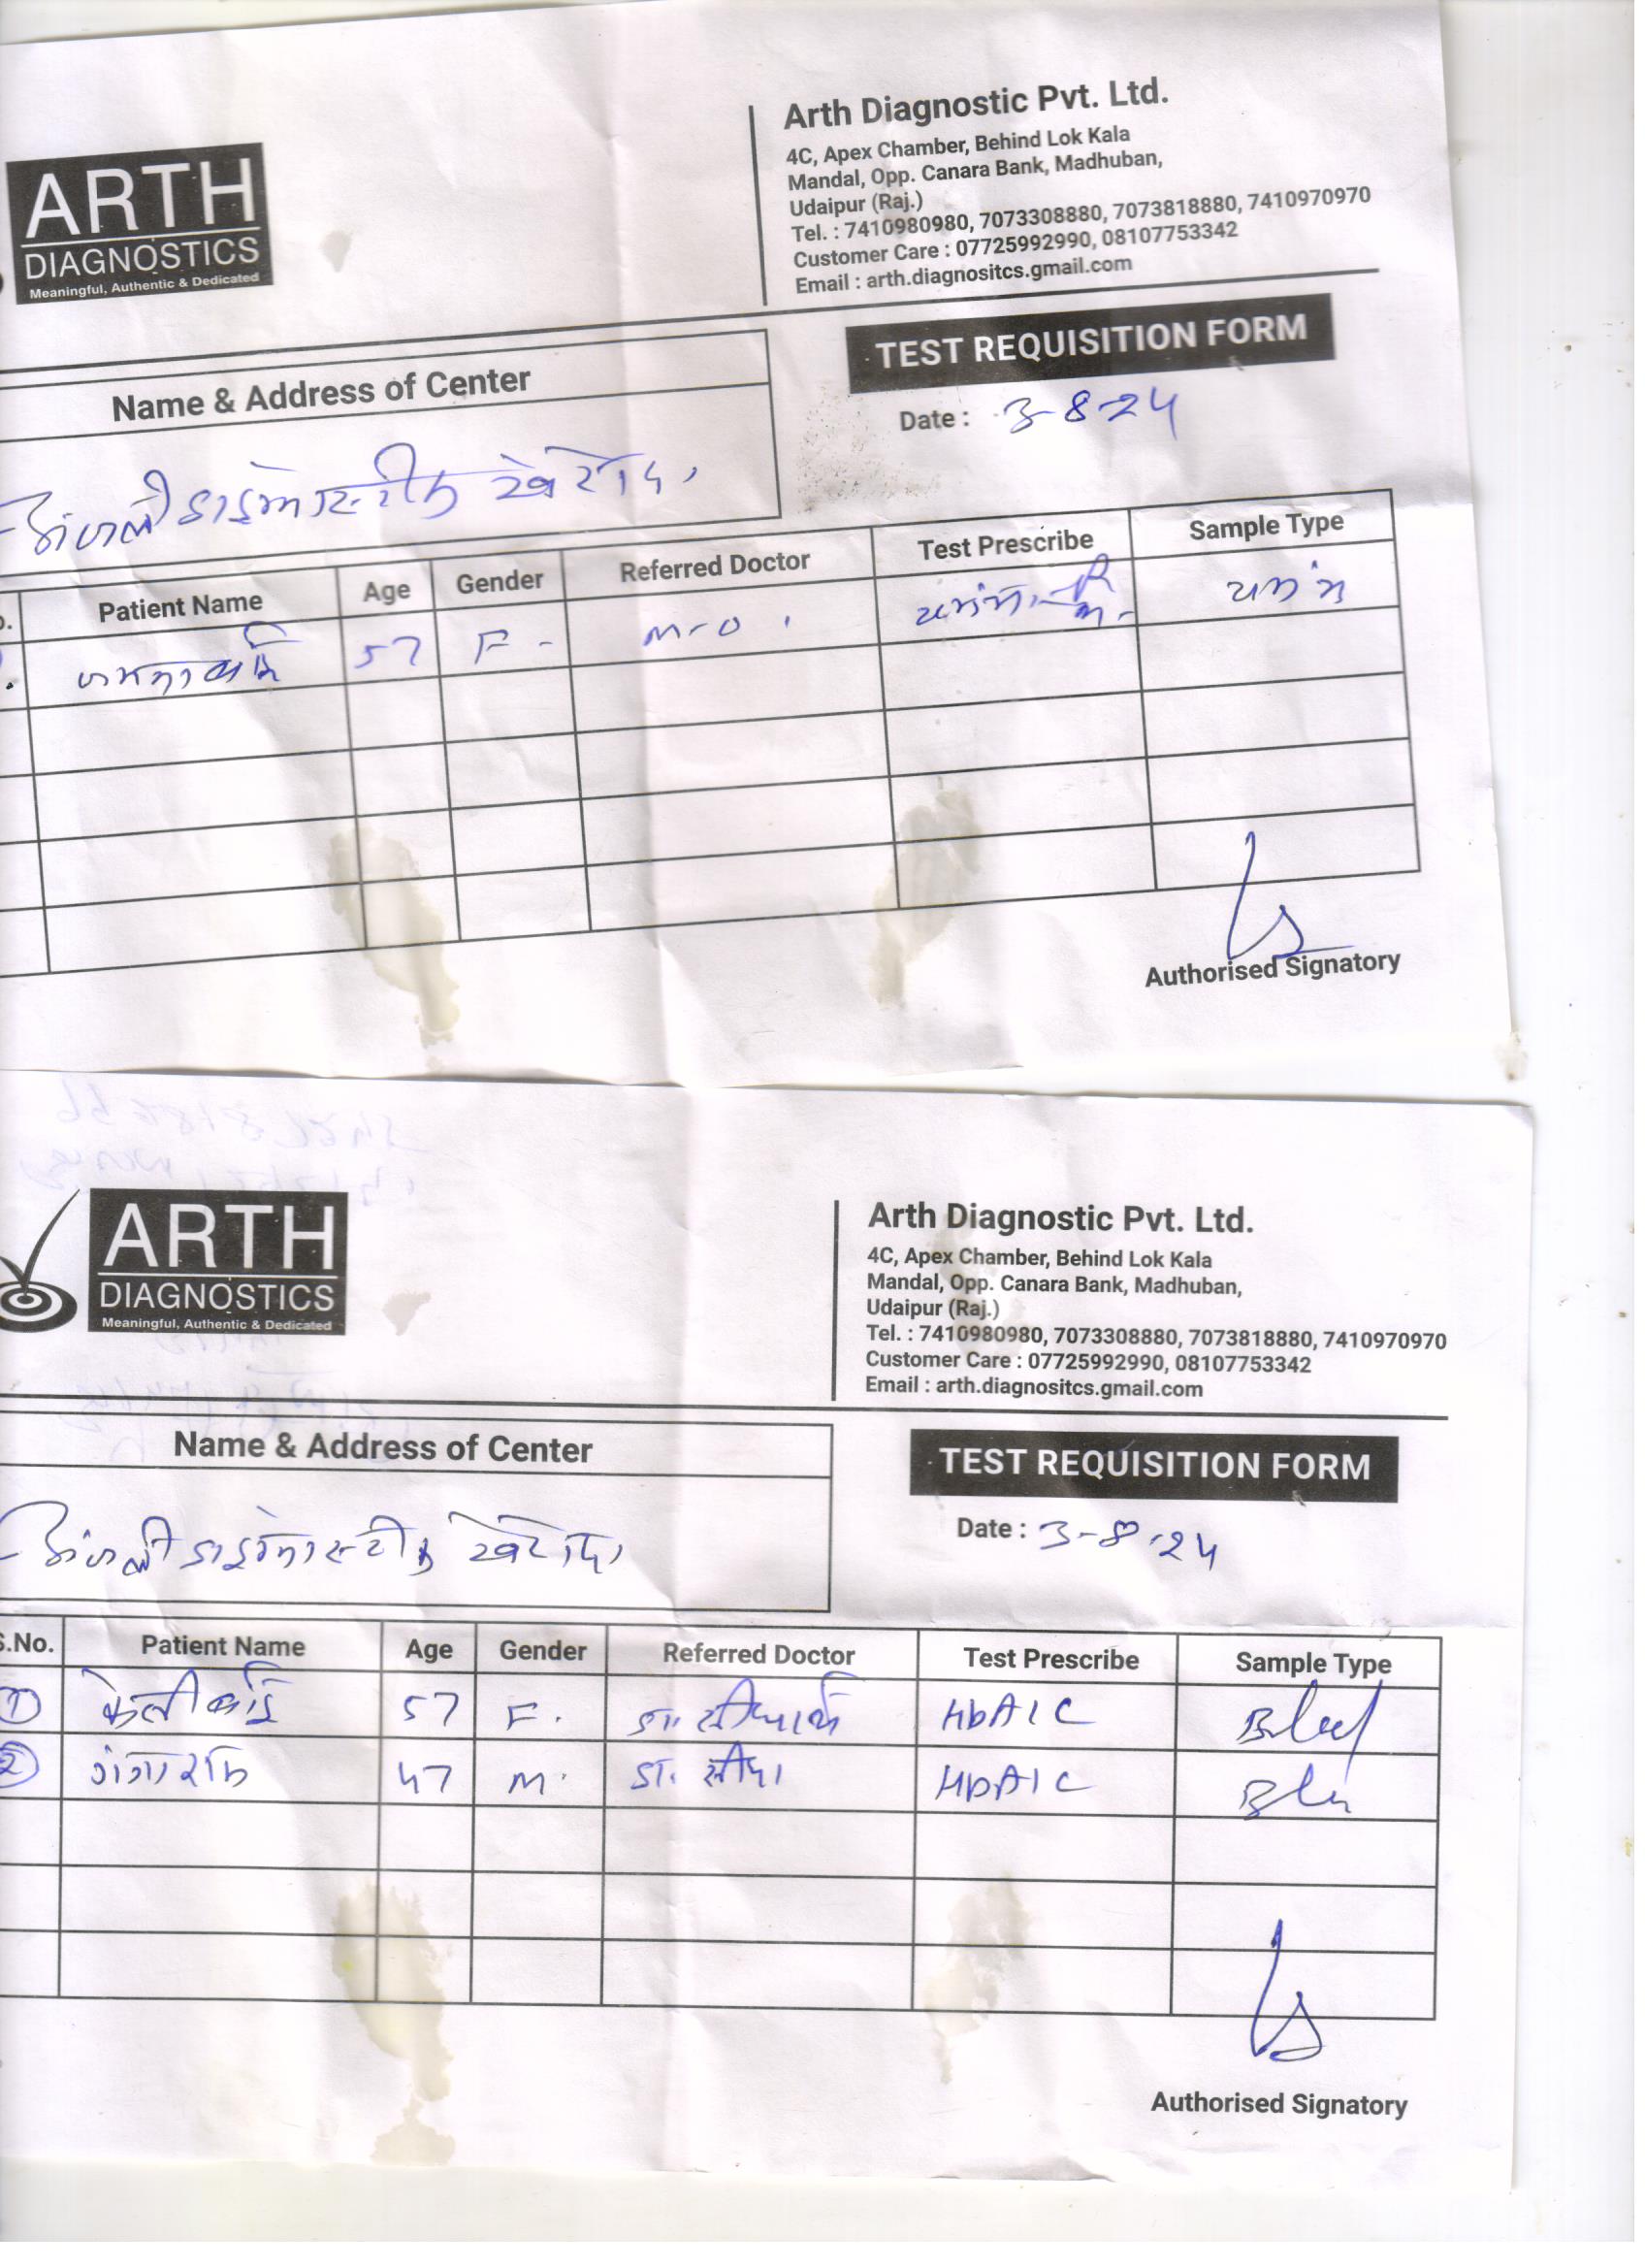 ARTH
DIAGNOSTICS
Meaningful, Authentic & Dedicated
Arth Diagnostic Pvt. Ltd.
4C, Apex Chamber, Behind Lok Kala
Mandal, Opp. Canara Bank, Madhuban,
Udaipur (Raj.)
Tel. : 7410980980, 7073308880, 7073818880, 7410970970
Customer Care : 07725992990, 08107753342
Email : arth.diagnositcs.gmail.com
Name & Address of Center
TEST REQUISITION FORM
Date : 3-8-24
खेरोदा
Patient Name Age Gender Referred Doctor Test Prescribe Sample Type
57 F - M-O.
Authorised Signatory
ARTH
DIAGNOSTICS
Meaningful, Authentic & Dedicated
Arth Diagnostic Pvt. Ltd.
4C, Apex Chamber, Behind Lok Kala
Mandal, Opp. Canara Bank, Madhuban,
Udaipur (Raj.)
Tel. : 7410980980, 7073308880, 7073818880, 7410970970
Customer Care : 07725992990, 08107753342
Email : arth.diagnositcs.gmail.com
Name & Address of Center
TEST REQUISITION FORM
Date : 3-8-24
खेरोदा
S.No. Patient Name Age Gender Referred Doctor Test Prescribe Sample Type
1 57 F. डा. HbA1C Blood
2 गंगाराम 47 M. डा. HbA1C
Authorised Signatory